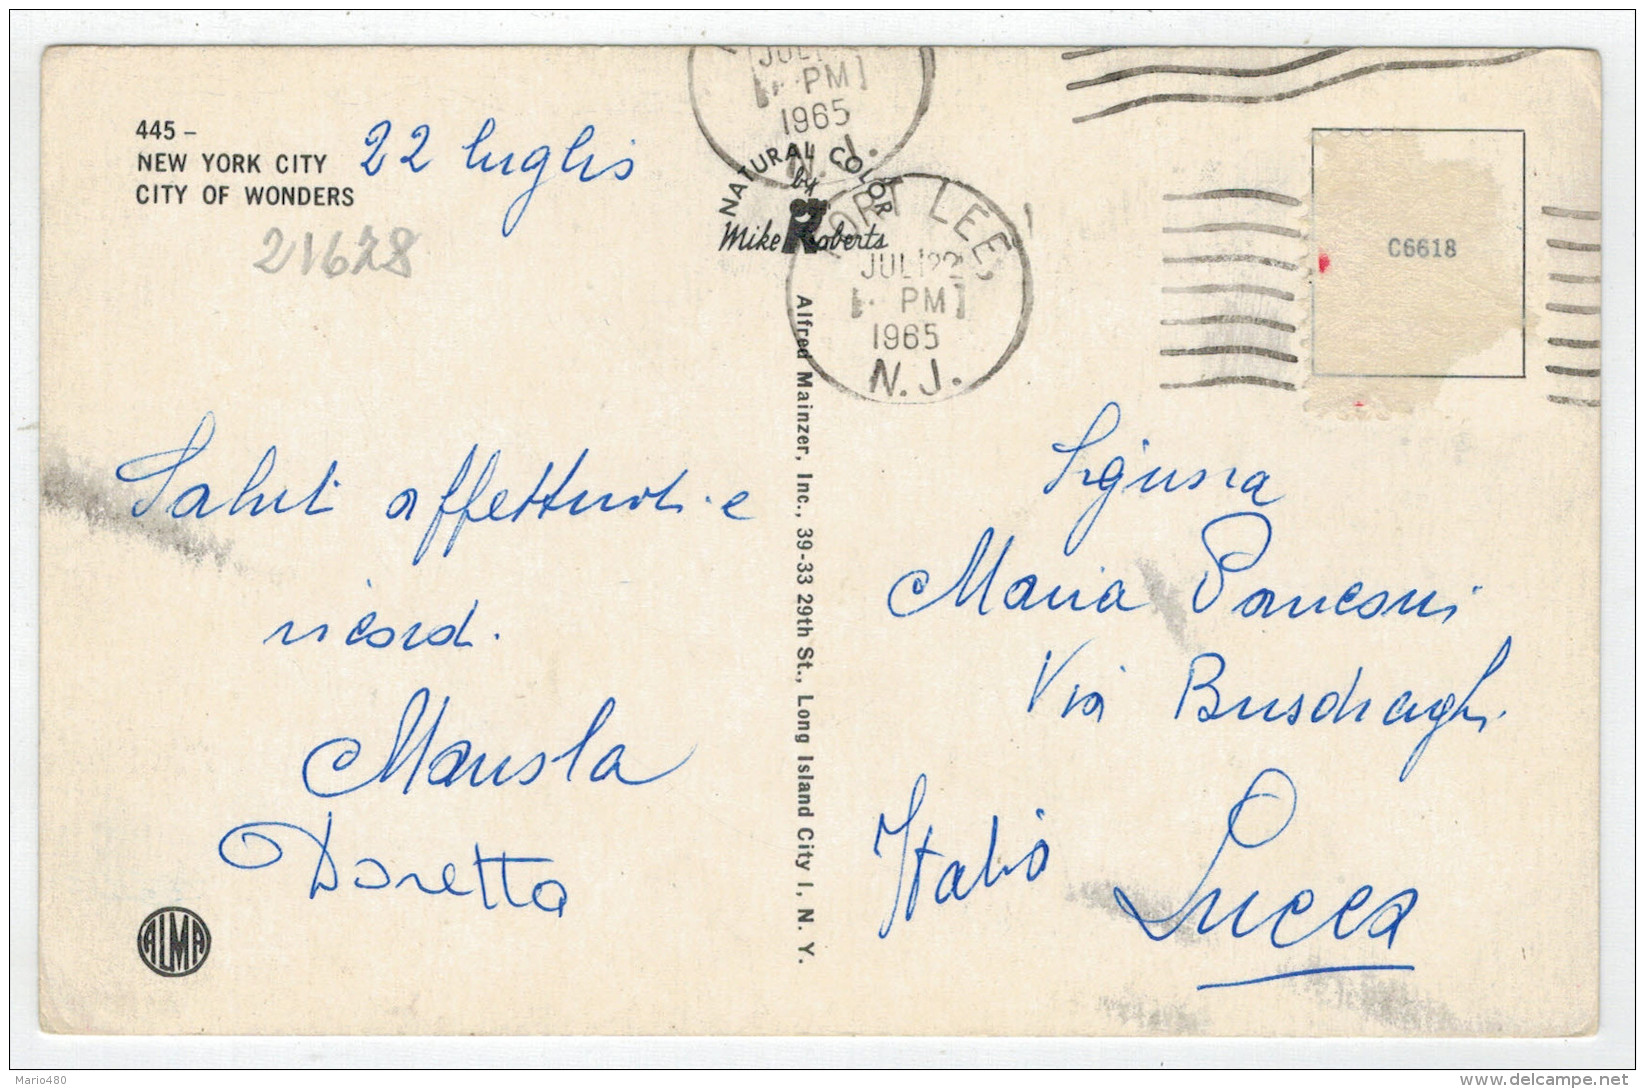 445 –
NEW YORK CITY
CITY OF WONDERS
22 luglio
21628
JUL
PM
1965
N. J.
NATURAL COLOR
by
Mike Roberts
FORT LEE,
JUL 22
PM
1965
N. J.
C6618
Alfred Mainzer, Inc., 39-33 29th St., Long Island City 1, N. Y.
Saluti affettuosi e
ricordi.
Doretta
ALMA
Signora
Maria Panconi
Via Busdraghi
Italia Lucca
Mario480
delcampe.net